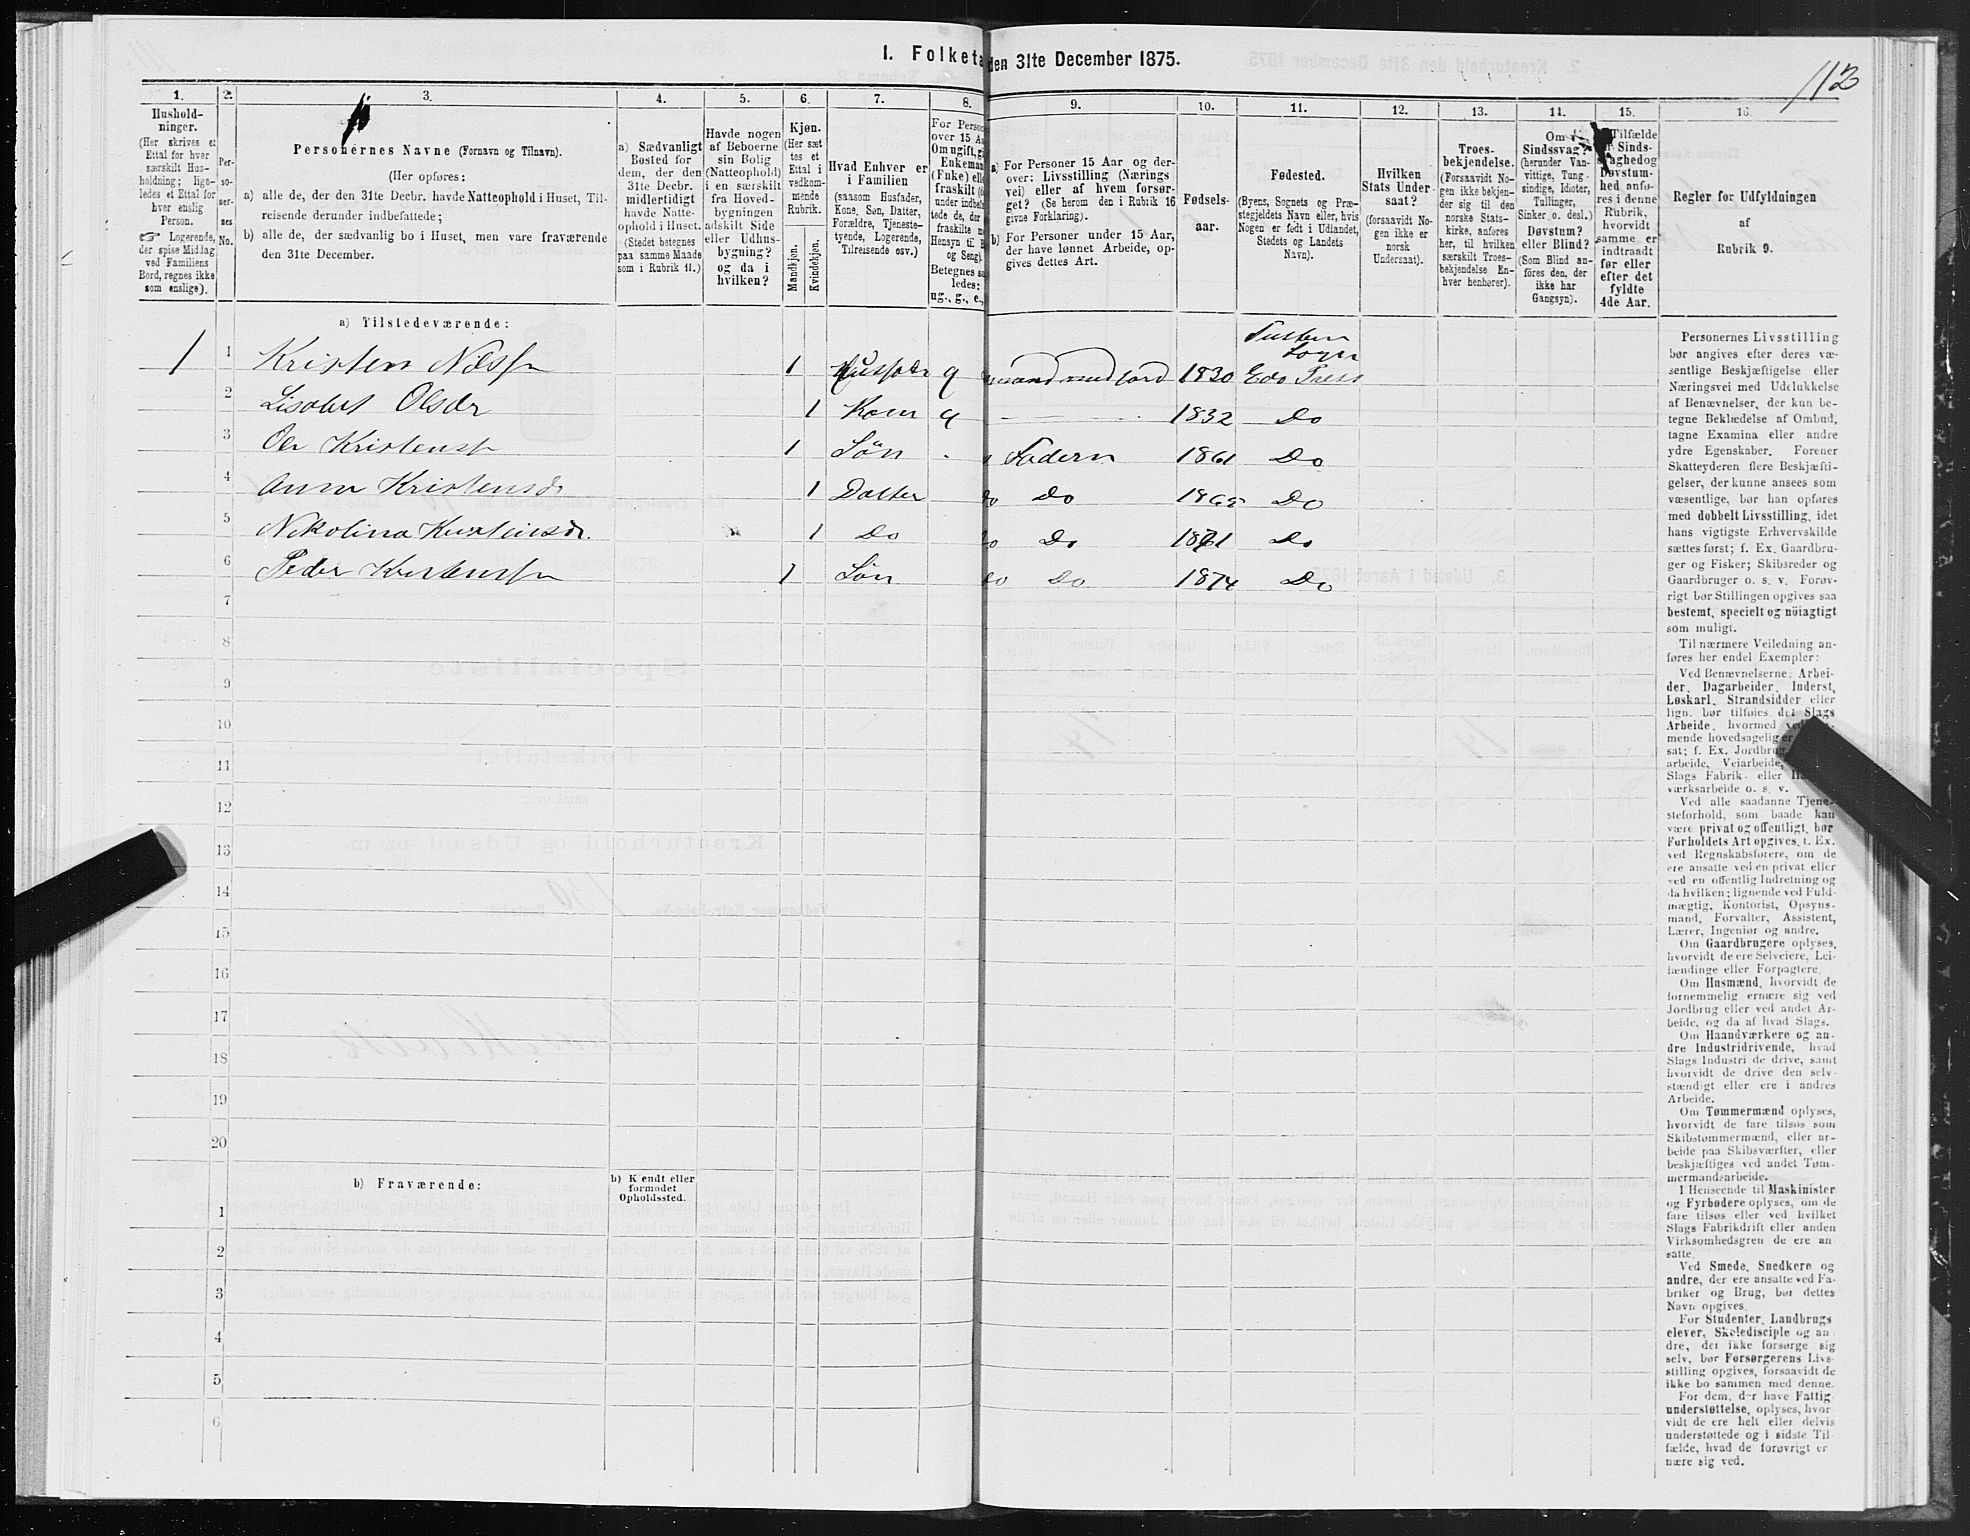 112
I. Folketa den 31te December 1875.
1. 2. 3. 4. 5. 6. 7. 8. 9. 10. 11. 12. 13. 14. 15. 16.
Hushold-
ninger.
(Her skrives et
Ettal for hver
særskilt Hus-
holdning; lige-
ledes et Ettal for
hver enslig
Person.
☞ Logerende,
der spise Middag
ved Familiens
Bord, regnes ikke
som enslige).
Per-
so-
ner-
nes
No.
Personernes Navne (Fornavn og Tilnavn).
(Her opføres:
a) alle de, der den 31te Decbr. havde Natteophold i Huset, Til-
reisende derunder indbefattede;
b) alle de, der sædvanlig bo i Huset, men vare fraværende
den 31te December.
a) Sædvanligt
Bosted for
dem, der den
31te Decbr.
midlertidigt
havde Natte-
ophold i Huset.
(Stedet betegnes
paa samme Maade
som i Rubrik 11.)
Havde nogen
af Beboerne
sin Bolig
(Natteophold)
i en særskilt
fra Hoved-
bygningen
adskilt Side
eller Udhus-
bygning?
og da i
hvilken?
Kjøn.
(Her sæt
tes et
Ettal i
vedkom-
mende
Rubrik.
Mandkjøn.
Kvindekjøn.
Hvad Enhver er
i Familien
(saasom Husfader,
Kone, Søn, Datter,
Forældre, Tjeneste-
tyende, Logerende,
Tilreisende osv.)
For Person
over 15 Aa
Om ugift, gi
Enkeman
(Fnke) elle
fraskilt
Betegnes sa
ledes:
ug., g., e.,
a) For Personer 15 Aar og der-
over: Livsstilling (Nærings
vei) eller af hvem forsør-
get? (Se herom den i Rubrik 16
givne Forklaring).
b) For Personer under 15 Aar,
der have lønnet Arbeide, op-
gives dettes Art.
Fødsels-
aar.
Fødested.
(Byens, Sognets og Præ-
stegjeldets Navn eller, hvis
Nogen er født i Udlandet,
Stedets og Landets
Navn).
Hvilken
Stats Under-
saat?
(forsaavidt No-
gen ikke er
norsk
Undersaat).
Troes-
bekjendelse.
(Forsaavidt No-
gen ikke bekjen-
der sig til den
norske Stats-
kirke, anføres
her, til hvilken
særskilt Troes-
bekjendelse En-
hver henhører).
Om
Sindssvag?
(herunder Van-
vittige, Tung-
sindige, Idioter,
Tullinger,
Sinker o. desl.)
Døvstum?
eller Blind?
(Som Blind an-
føres den, der
ikke har
Gangsyn).
Tilfælde
Sinds-
svaghedog
Døvstum-
hed anfø-
res i denne
Rubrik,
hvorvidt
samme er
indtraadt
før eller
efter det
fyldte
4de Aar.
Regler for Udfyldningen
af
Rubrik 9.
a) Tilstedeværende:
Tusteren
Sogn
1 1 Kristen Nilss 1 Husfader g 1830 Edø Præst
2 Lisabet Olsdr 1 Kone g 1832 Do
3 Ole Kristenss 1 Søn Faderen 1861 Do
4 Anne Kristensdr 1 Datter do Do Do
5 Nikolina Kristensdr. 1 Do do Do 1871 Do
6 Peder Kristenssen 1 Søn do Do 1874 Do
7
8
9
10
11
12
13
14
15
16
17
18
19
20
b) Fraværende:
b) Kjendt eller
formodet
Opholdssted.
1
2
3
4
5
6
Personernes Livsstilling
bør angives efter deres væ-
sentlige Beskjæftigelse eller
Næringsvei med Udelukkelse
af Benævnelser, der kun be-
tegne Beklædelse af Ombud,
tagne Examina eller andre
ydre Egenskaber. Forener
Skatteyderen flere Beskjæfti-
gelser, der kunne ansees som
væsentlige, bør han opføres
med dobbelt Livsstilling, idet
hans vigtigste Erhvervskilde
sættes først; f. Ex. Gaardbru-
ger og Fisker; Skibsreder og
Gaardbruger o. s. v. Forøv-
rigt bør Stillingen opgives saa
bestemt, specielt og nöiagtigt
som muligt.
Til nærmere Veiledning an-
føres her endel Exempler:
Ved Benævnelserne: Arbei-
der, Dagarbeider, Inderst,
Løskarl, Strandsidder eller
lign. bør tilføies det Slags
Arbeide, hvormed
mende hovedsagelig er
sat; f. Ex. Jordbrug
arbeide, Veiarbeide,
Slags Fabrik- eller
værksarbeide o. s. v.
Ved alle saadanne Tjene-
steforhold, som baade kan
være privat og offentligt, bør
Forholdets Art opgives, f. Ex.
ved Regnskabsførere, om de
ere ansatte ved en privat eller
ved en offentlig Indretning og
da hvilken; lignende ved Fuld-
mægtig, Kontorist, Opsyns-
mand, Forvalter, Assistent,
Lærer, Ingeniør og andre.
Om Gaardbrugere oplyses,
hvorvidt de ere Selveiere, Lei-
lændinge eller Forpagtere.
Om Husmænd, hvorvidt de
fornemmelig ernære sig ved
Jordbrug eller ved andet Ar-
beide, og da af hvad Slags.
Om Haandværkere og an-
dre Industridrivende, hvad
Slags Industri de drive, samt
hvorvidt de drive den selv-
stændigt eller ere i andres
Arbeide.
Om Tømmermænd oplyses,
hvorvidt de fare tilsøs som
Skibstømmermænd, eller ar-
beide paa Skibsværfter, eller
beskjæftiges ved andet Tøm-
mermandsarbeide.
I Henseende til Maskinister
og Fyrbødere oplyses, om de
fare tilsøs eller ved hvilket
Slags Fabrikdrift eller anden
Virksomhedsgren de ere an-
satte.
Ved Smede, Snedkere og
andre, der ere ansatte ved Fa-
briker og Brug, bør dettes
Navn opgives.
For Studenter, Landbrugs
elever, Skoledisciple og an-
dre, der ikke forsørge sig
selv, bør Forsørgerens Livs-
stilling opgives, forsaavidt de
ikke bo sammen med denne.
For dem, der have Fattig
understøttelse, oplyses, hvor-
vidt de ere helt eller delvis
understøttede og i sidste Til-
fælde, hvad de forøvrigt er
nære sig ved.